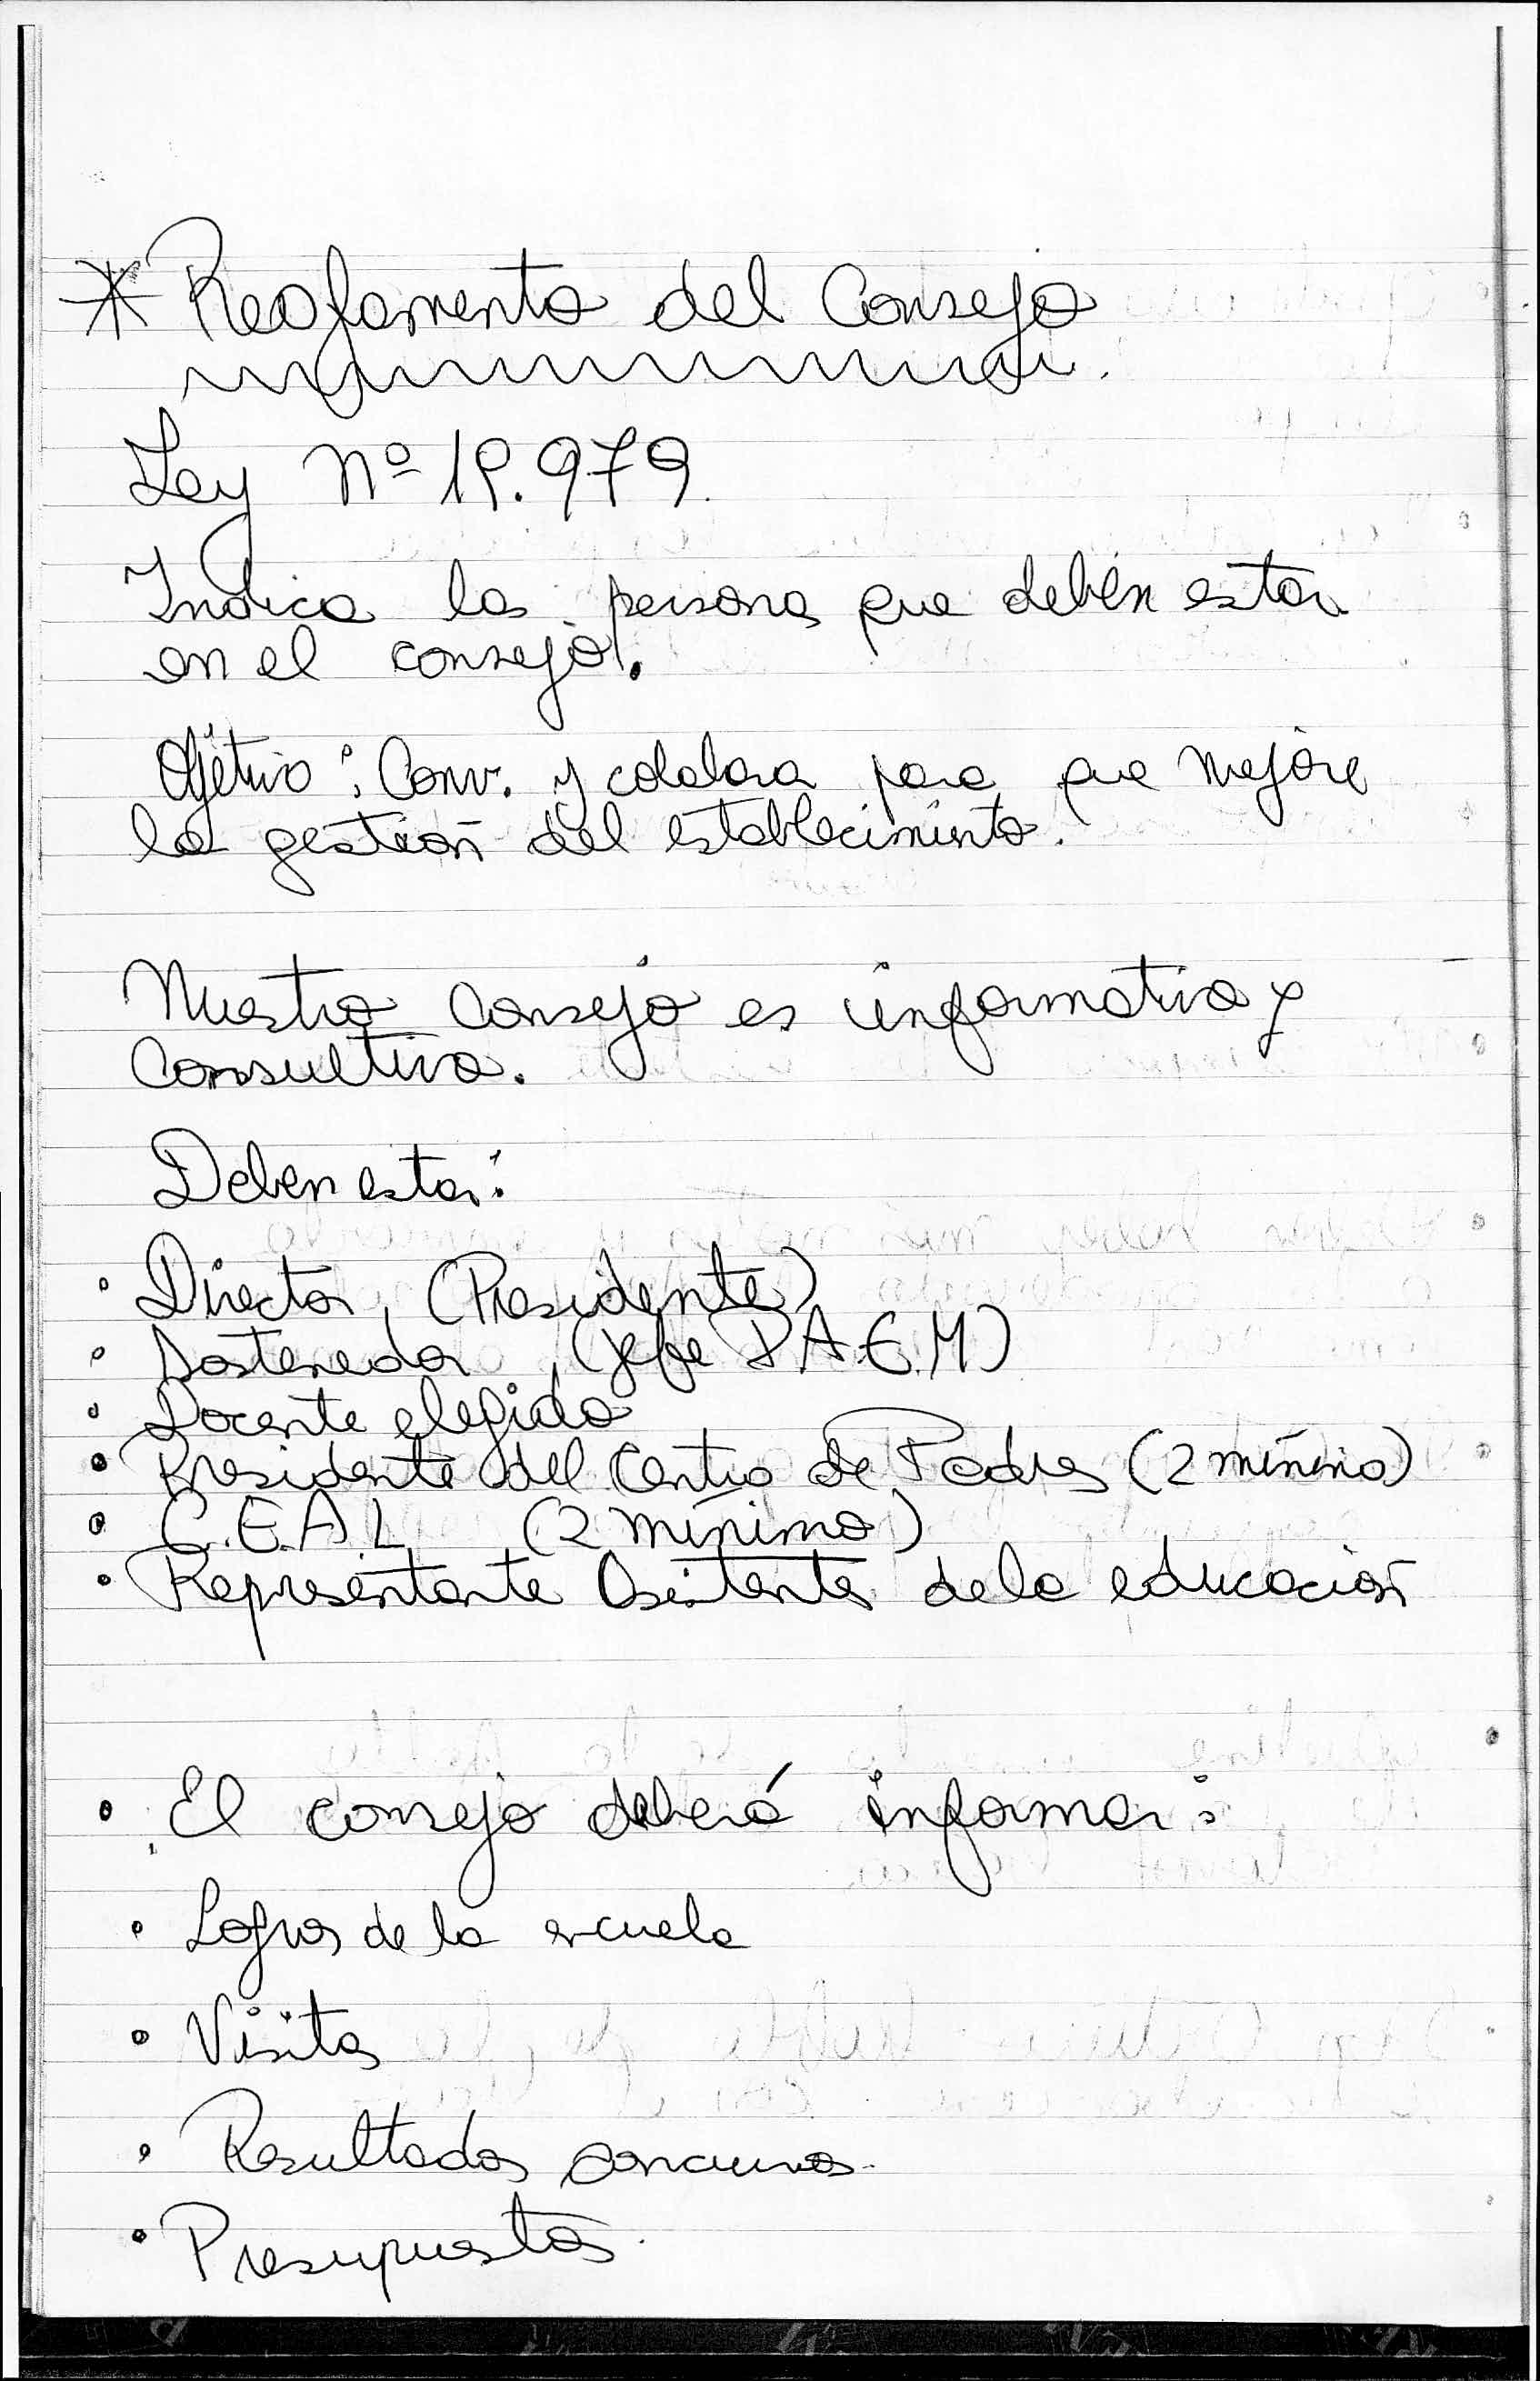 * Reglamento del Consejo
Ley Nº 19.979.
Indica las personas que deben estar
en el consejo.
Objetivo: Conv. y colabora para que mejore
la gestión del establecimiento.
Nuestro Consejo es informativo y
Consultivo.
Deben estar:
• Director, (Presidente)
• Sostenedor, (Jefe D.A.E.M)
• Docente elegido
• Presidente del Centro de Padres (2 mínimo)
• C.E.A.L (2 mínimo)
• Representante Asistentes de la educación
• El consejo deberá informar:
• Logros de la escuela
• Visitas
• Resultados concursos.
• Presupuestos.